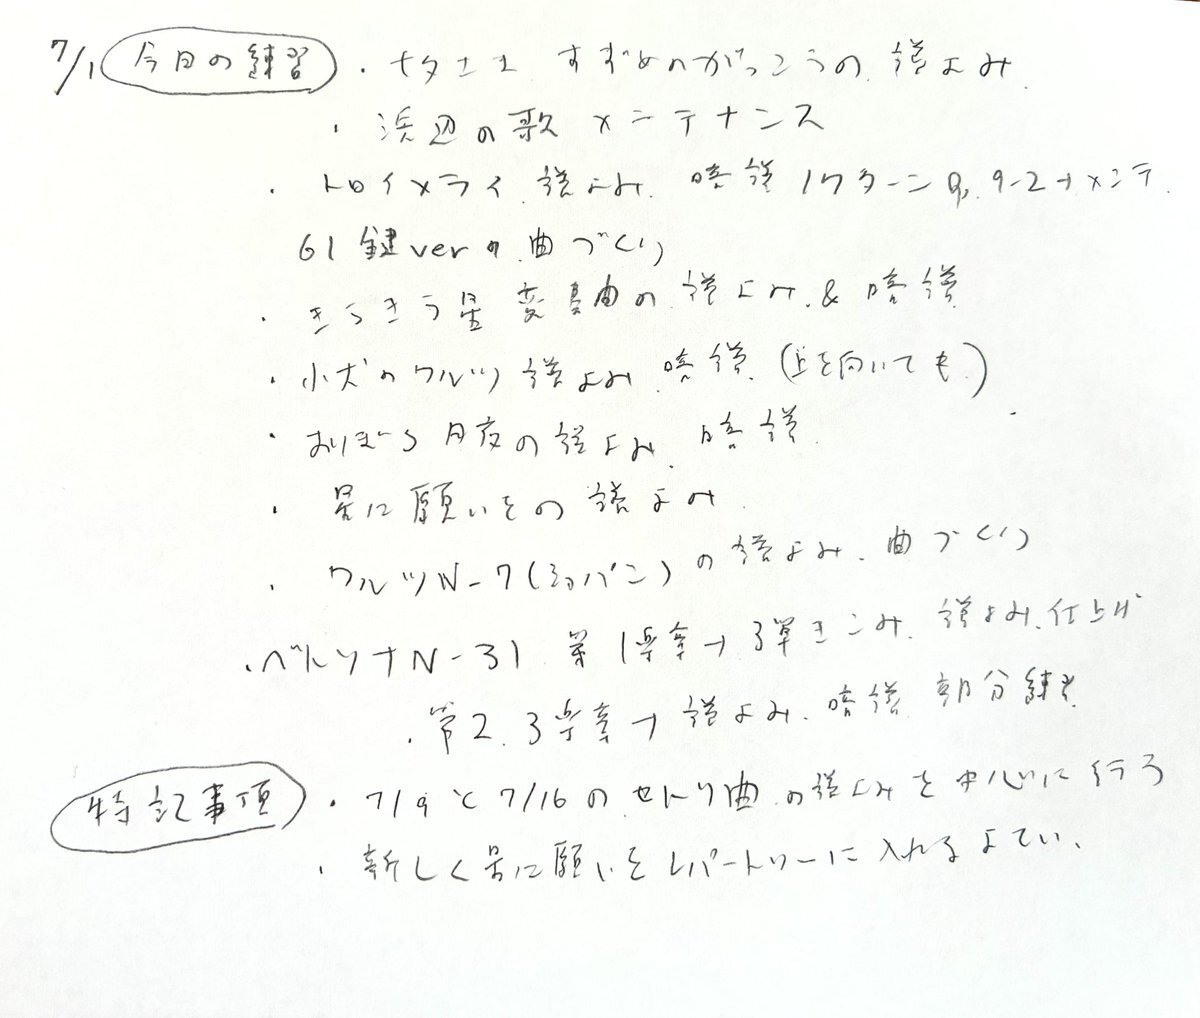 7/1 今日の練習 ・ すずめのがっこうの 譜よみ
・ 浜辺の歌 メンテナンス
・ トロイメライ 譜よみ. 暗譜 1クターン 9-2→メンテ.
61鍵verの曲づくり
・ きらきら星変奏曲の譜よみ & 暗譜
・ 小犬のワルツ 譜よみ. 暗譜. (上を向いても)
・ おぼろ月夜の譜よみ. 暗譜.
・ 星に願いをの譜よみ.
・ ワルツN-7(ショパン)の譜よみ. 曲づくり
・ベトソナN-31 第1楽章→弾きこみ. 譜よみ. 仕上げ
・第2. 3楽章→譜よみ. 暗譜 部分練習
特記事項 ・ 7/9と7/16のセトリ曲の譜よみを中心に行う
・ 新しく星に願いをレパートリーに入れるよてい.